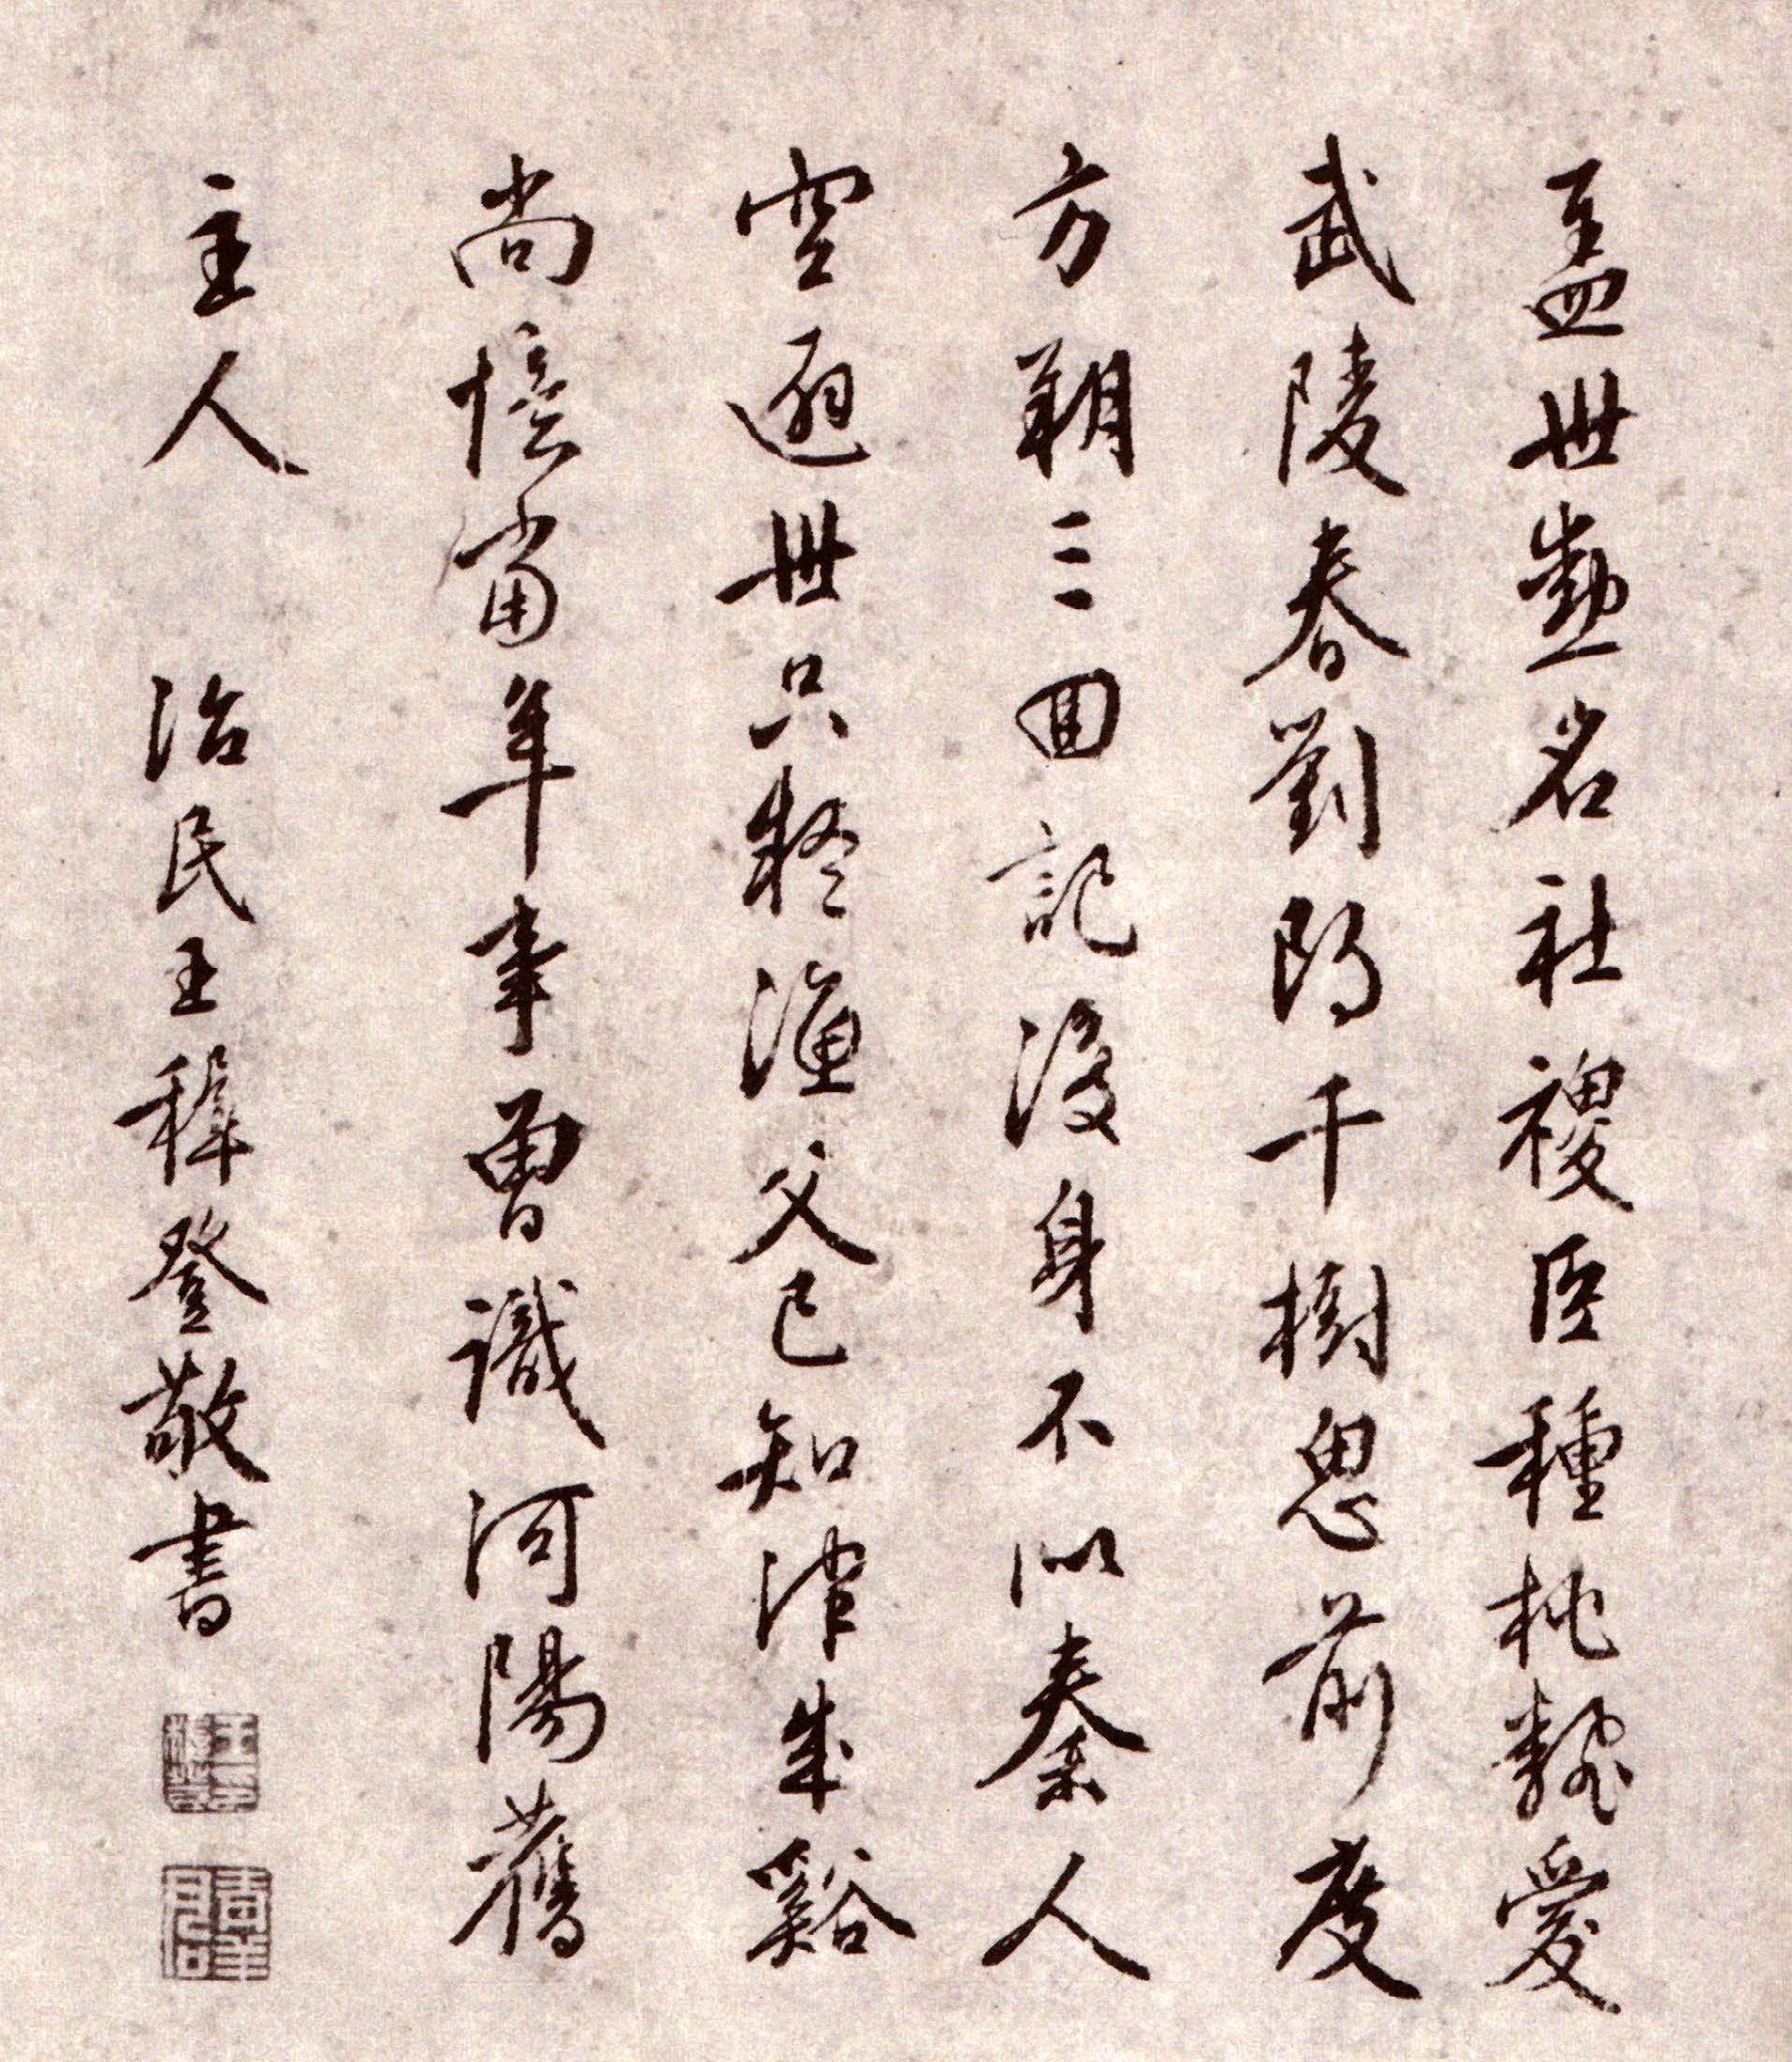 盖世勳名社稷臣種桃愛
武陵春劉郎千樹思前度
方朔三回記後身不似秦人
空避世只疑漁父已知津成谿
尚憶當年事曾識河陽舊
主人 治民王穉登敬書
青羊君